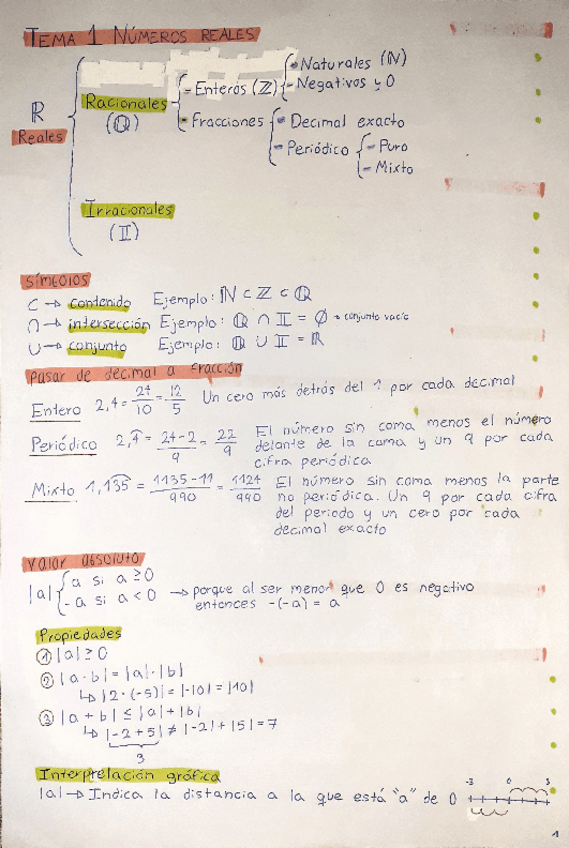 TEMA 1 NÚMEROS REALES
ℝ Reales
Racionales (ℚ)
- Enteros (ℤ)
- Naturales (ℕ)
- Negativos y 0
- Fracciones
- Decimal exacto
- Periódico
- Puro
- Mixto
Irracionales (𝕀)
SÍMBOLOS
⊂ → contenido Ejemplo: ℕ ⊂ ℤ ⊂ ℚ
∩ → intersección Ejemplo: ℚ ∩ 𝕀 = ∅ → conjunto vacío
∪ → conjunto Ejemplo: ℚ ∪ 𝕀 = ℝ
Pasar de decimal a fracción
Entero 2,4 = 24/10 = 12/5 Un cero más detrás del 1 por cada decimal
Periódico 2,4͡ = 24-2/9 = 22/9 El número sin coma menos el número
delante de la coma y un 9 por cada
cifra periódica
Mixto 1,135͡ = 1135-11/990 = 1124/990 El número sin coma menos la parte
no periódica. Un 9 por cada cifra
del periodo y un cero por cada
decimal exacto
Valor absoluto
|a| { a si a ≥ 0
- a si a < 0 → porque al ser menor que 0 es negativo
entonces -(-a) = a
Propiedades
① |a| ≥ 0
② |a · b| = |a| · |b|
↳ |2 · (-5)| = |-10| = |10|
③ |a + b| ≤ |a| + |b|
↳ |-2 + 5| ≠ |-2| + |5| = 7
3
Interpretación gráfica
|a| → Indica la distancia a la que está "a" de 0
-3 0 3
1